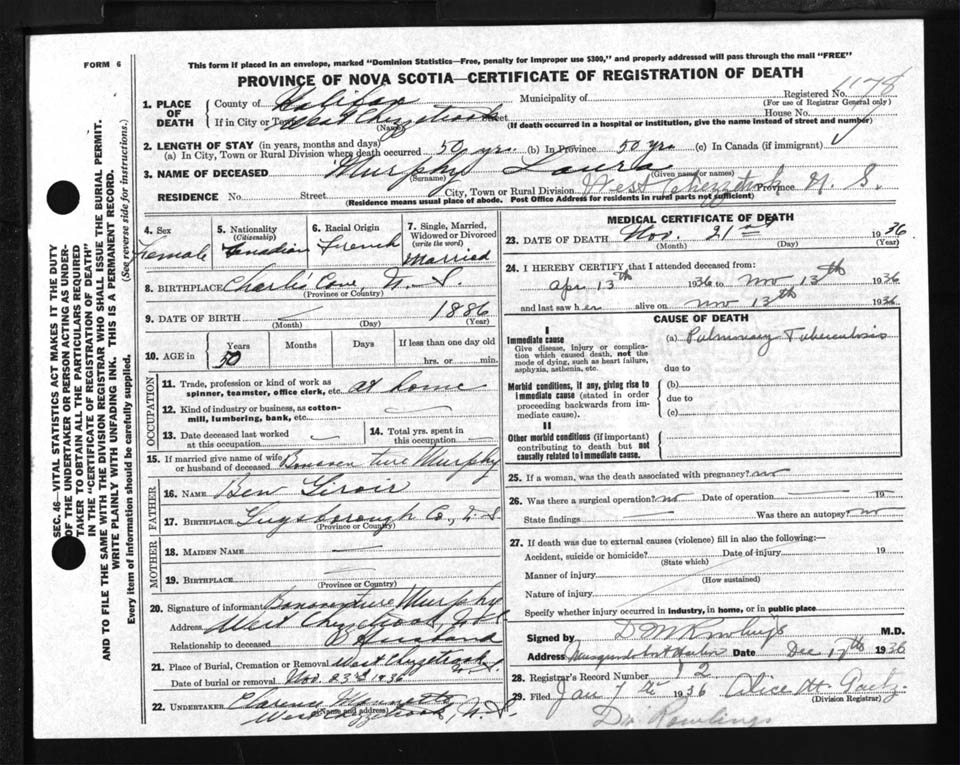 FORM 6
This form if placed in an envelope, marked "Dominion Statistics—Free, penalty for improper use $300," and properly addressed will pass through the mail "FREE"
PROVINCE OF NOVA SCOTIA—CERTIFICATE OF REGISTRATION OF DEATH
Registered No. 1178
(For use of Registrar General only)
1. PLACE OF DEATH
County of Halifax Municipality of
If in City or Town West Chezzetcook Street House No.
(Name) (If death occurred in a hospital or institution, give the name instead of street and number)
2. LENGTH OF STAY (in years, months and days)
(a) In City, Town or Rural Division where death occurred 50 yrs. (b) In Province 50 yrs (c) In Canada (if immigrant)
3. NAME OF DECEASED Murphy Laura
(Surname) (Given name or names)
RESIDENCE No. Street City, Town or Rural Division West Chezzetcook Province N. S.
(Residence means usual place of abode. Post Office Address for residents in rural parts not sufficient)
4. Sex
Female
5. Nationality
(Citizenship)
Canadian
6. Racial Origin
French
7. Single, Married, Widowed or Divorced
(write the word)
Married
8. BIRTHPLACE Charlie's Cove, N. S.
(Province or Country)
9. DATE OF BIRTH — 1886
(Month) (Day) (Year)
10. AGE in
Years Months Days If less than one day old
50 hrs. or min.
OCCUPATION
11. Trade, profession or kind of work as spinner, teamster, office clerk, etc. at home
12. Kind of industry or business, as cotton-mill, lumbering, bank, etc. —
13. Date deceased last worked at this occupation —
14. Total yrs. spent in this occupation —
15. If married give name of wife or husband of deceased Bonaventure Murphy
FATHER
16. NAME Ben Giroir
17. BIRTHPLACE Guysborough Co., N. S
(Province or Country)
MOTHER
18. MAIDEN NAME —
19. BIRTHPLACE —
(Province or Country)
20. Signature of informant Bonaventure Murphy
Address West Chezzetcook, N.S.
Relationship to deceased Husband
21. Place of Burial, Cremation or Removal West Chezzetcook N.S.
Date of burial or removal Nov. 23rd 1936
22. UNDERTAKER Clarence
(Name and address)
West Chezzetcook, N.S.
MEDICAL CERTIFICATE OF DEATH
23. DATE OF DEATH Nov. 21st 1936
(Month) (Day) (Year)
24. I HEREBY CERTIFY that I attended deceased from:
apr 13th 1936 to nov 13th 1936
and last saw her alive on nov 13th 1936
CAUSE OF DEATH
I
Immediate cause
Give disease, injury or complication which caused death, not the mode of dying, such as heart failure, asphyxia, asthenia, etc.
(a) Pulmonary Tuberculosis
due to
Morbid conditions, if any, giving rise to immediate cause (stated in order proceeding backwards from immediate cause).
(b)
due to
(c)
II
Other morbid conditions (if important) contributing to death but not causally related to immediate cause.
25. If a woman, was the death associated with pregnancy? no
26. Was there a surgical operation? no Date of operation — 19
State findings — Was there an autopsy? no
27. If death was due to external causes (violence) fill in also the following:—
Accident, suicide or homicide? Date of injury 19
(State which)
Manner of injury
(How sustained)
Nature of injury
Specify whether injury occurred in industry, in home, or in public place
Signed by D M Rowlings M.D.
Address Musquodoboit Harbor Date Dec 17th 1936
28. Registrar's Record Number 12
29. Filed Jan 7th 1936 Alice H.
(Division Registrar)
Dr Rowlings
SEC. 46—VITAL STATISTICS ACT MAKES IT THE DUTY
OF THE UNDERTAKER OR PERSON ACTING AS UNDER-
TAKER TO OBTAIN ALL THE PARTICULARS REQUIRED
IN THE "CERTIFICATE OF REGISTRATION OF DEATH"
AND TO FILE THE SAME WITH THE DIVISION REGISTRAR WHO SHALL ISSUE THE BURIAL PERMIT.
WRITE PLAINLY WITH UNFADING INK. THIS IS A PERMANENT RECORD.
Every item of information should be carefully supplied. (See reverse side for instructions.)